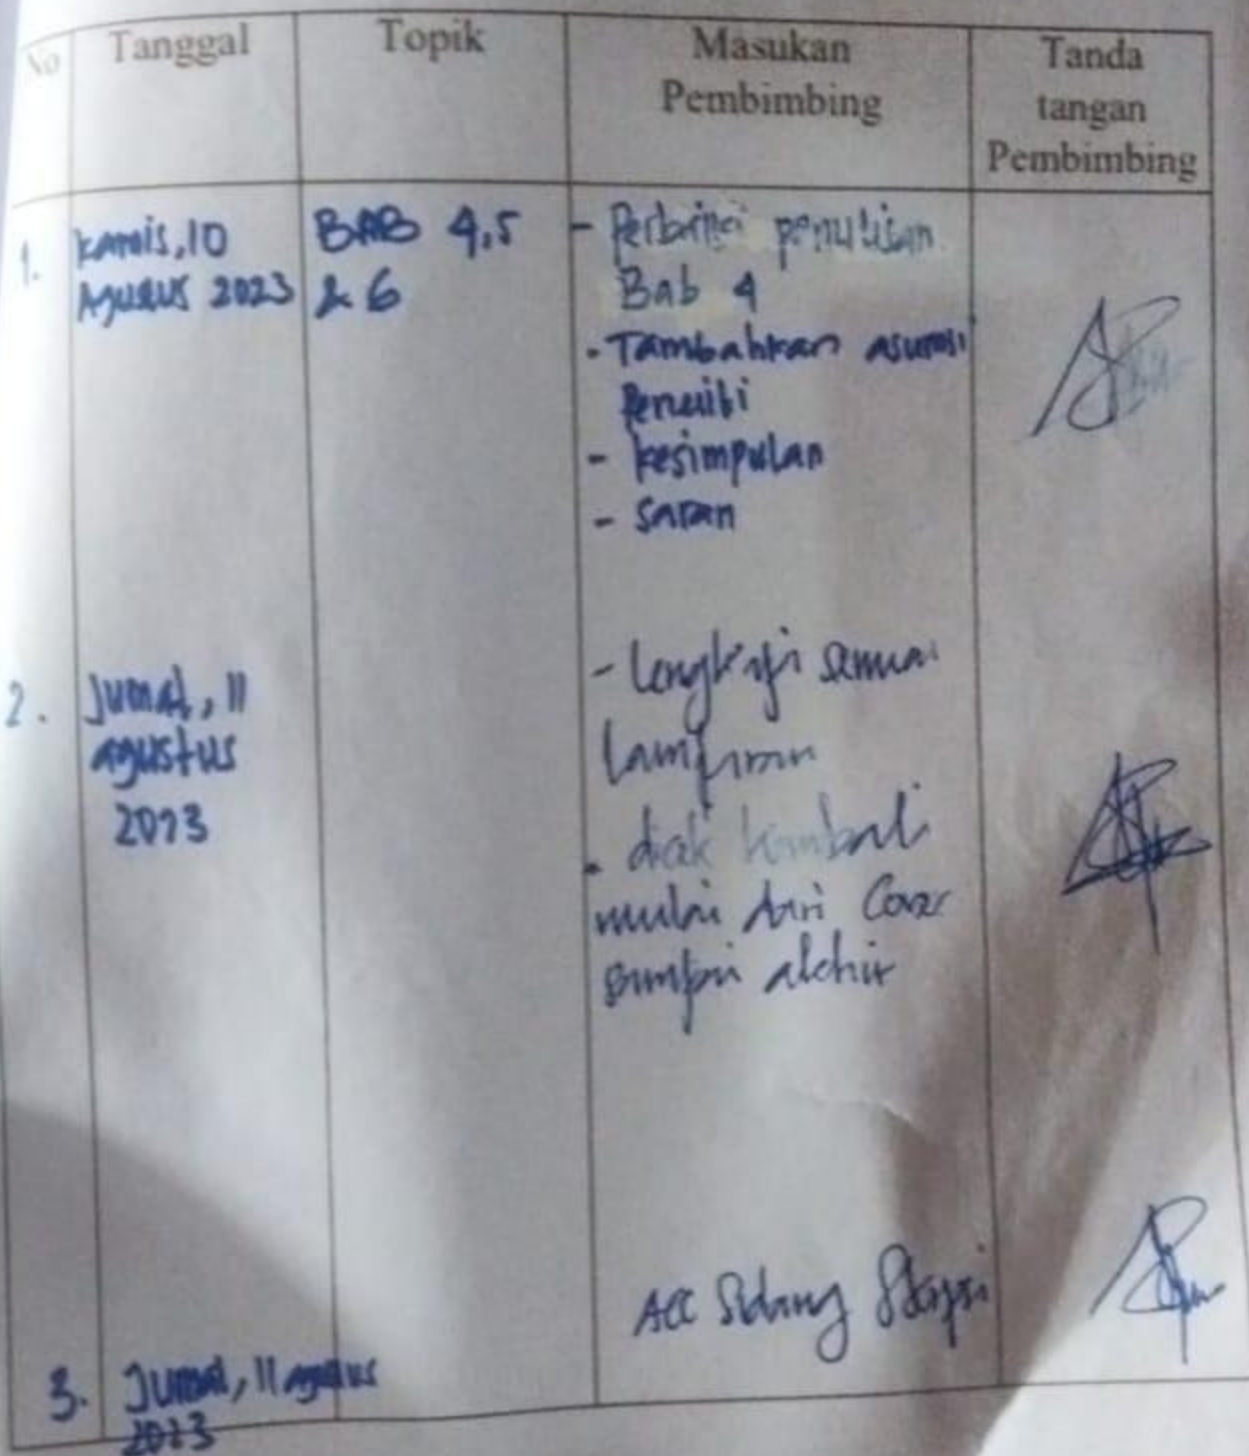 No Tanggal Topik Masukan Pembimbing Tanda tangan Pembimbing
1. Kamis, 10 Agustus 2023
BAB 4,5 & 6
- Perbaiki penulisan
Bab 4
- Tambahkan asumsi
Peneliti
- kesimpulan
- saran
2. Jumat, 11
agustus
2023
- lengkapi semua
lampiran
- dicek kembali
mulai dari Cover
sampai akhir
3. Jumat, 11 agustus
2023
ACC Sidang Skripsi